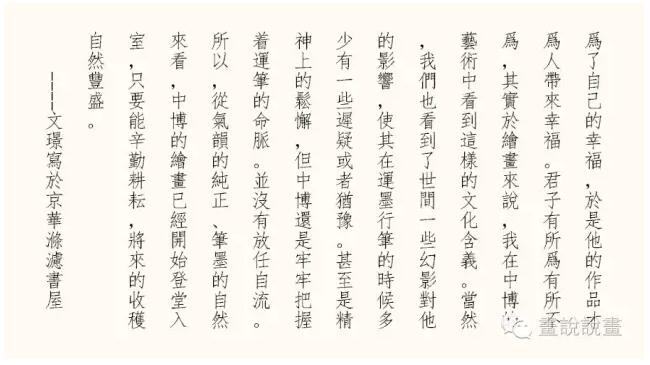 爲了自己的幸福，於是他的作品才
爲人帶來幸福。君子有所爲有所不
爲，其實於繪畫來說，我在中博的
藝術中看到這樣的文化含義。當然
，我們也看到了世間一些幻影對他
的影響，使其在運墨行筆的時候多
少有一些遲疑或者猶豫。甚至是精
神上的鬆懈，但中博還是牢牢把握
着運筆的命脈。並沒有放任自流。
所以，從氣韻的純正、筆墨的自然
來看，中博的繪畫已經開始登堂入
室，只要能辛勤耕耘，將來的收穫
自然豐盛。
————文璟寫於京華滌濾書屋
畫說說畫